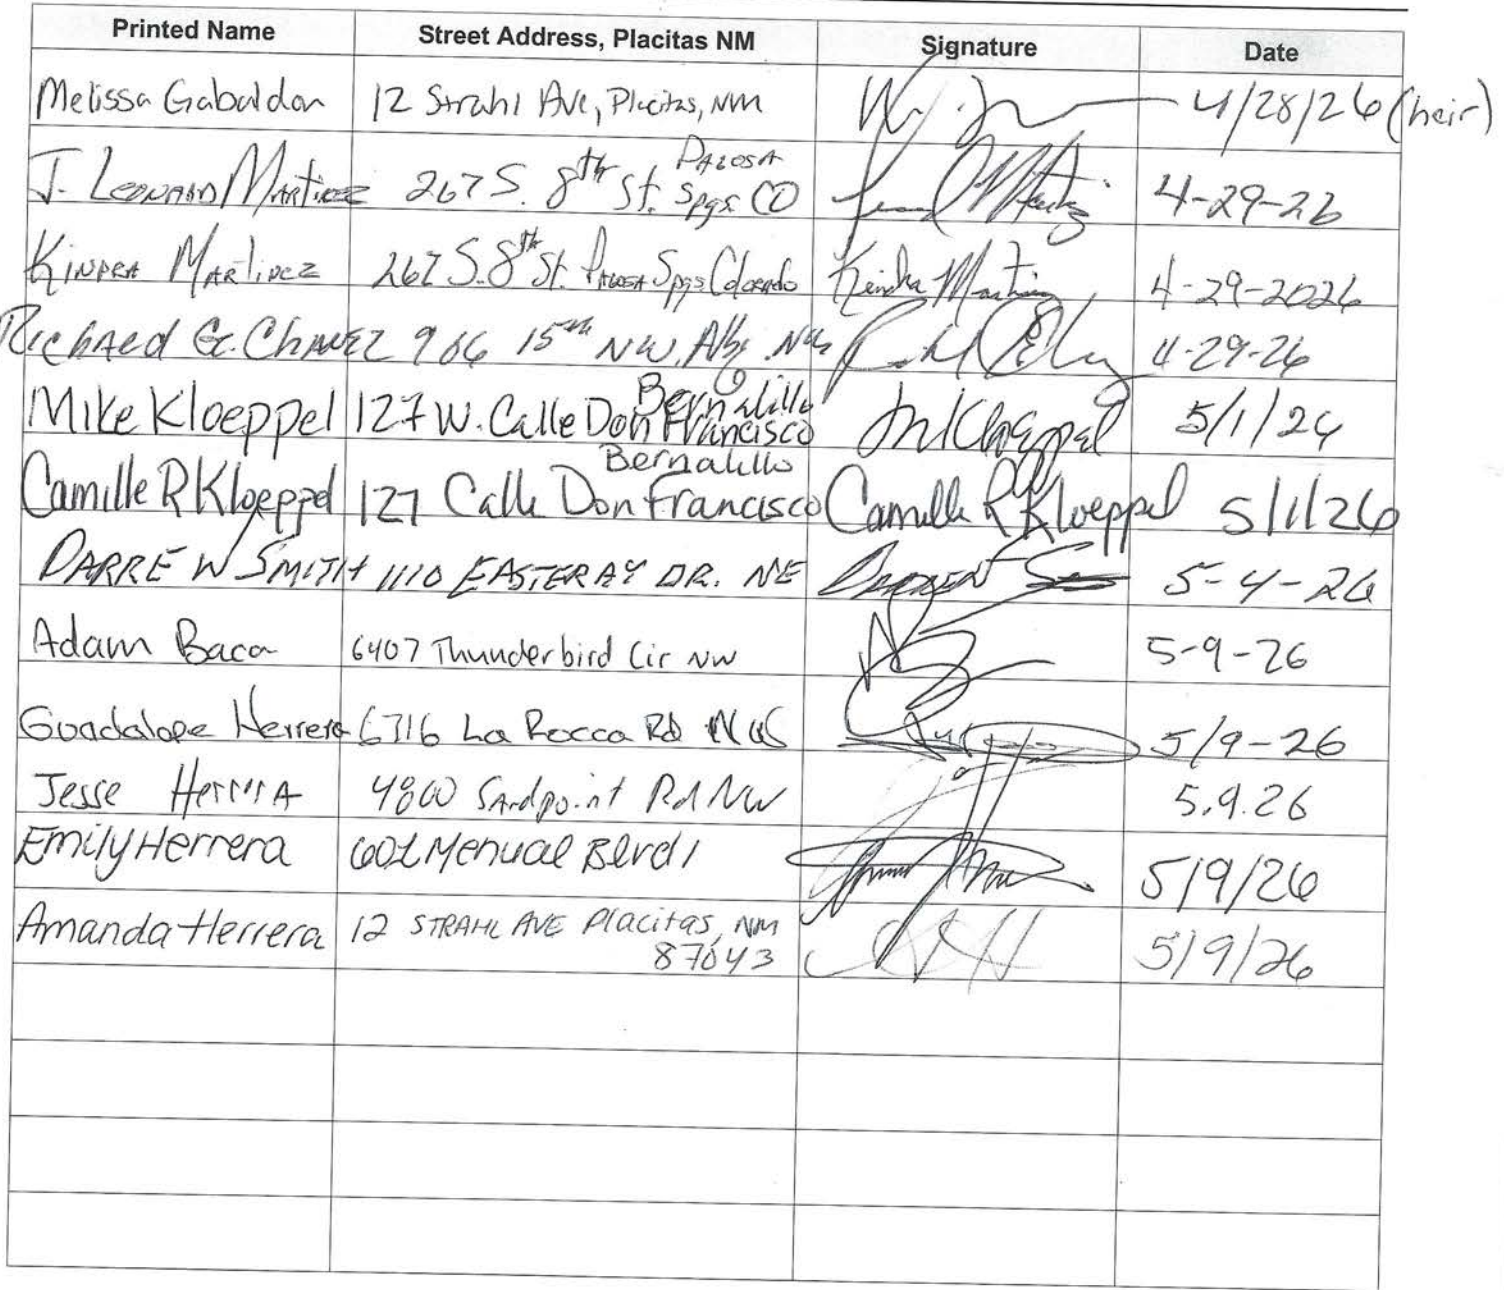 Printed Name Street Address, Placitas NM Signature Date
Melissa Gabaldon 12 Strahl Ave, Placitas, NM 4/28/26 (heir)
J. Leonard Martinez 267 S. 8th St. Pagosa Spgs CO 4-29-26
Kindra Martinez 267 S. 8th St. Pagosa Spgs Colorado Kindra Martinez 4-29-2026
Richard G. Chavez 906 15th NW, Albq. NM 4-29-26
Mike Kloeppel 127 W. Calle Don Francisco Bernalillo M Kloeppel 5/1/26
Camille R Kloeppel 127 Calle Don Francisco Bernalillo Camille R Kloeppel 5/1/26
DARREN SMITH 1110 EASTERAY DR. NE 5-4-26
Adam Baca 6407 Thunderbird Cir NW 5-9-26
Guadalope Herrera 6716 La Rocca Rd NW 5/9-26
Jesse Herrera 4800 Sandpoint Rd NW 5.9.26
Emily Herrera Menual Blvd 5/9/26
Amanda Herrera 12 STRAHL AVE Placitas, NM 87043 5/9/26